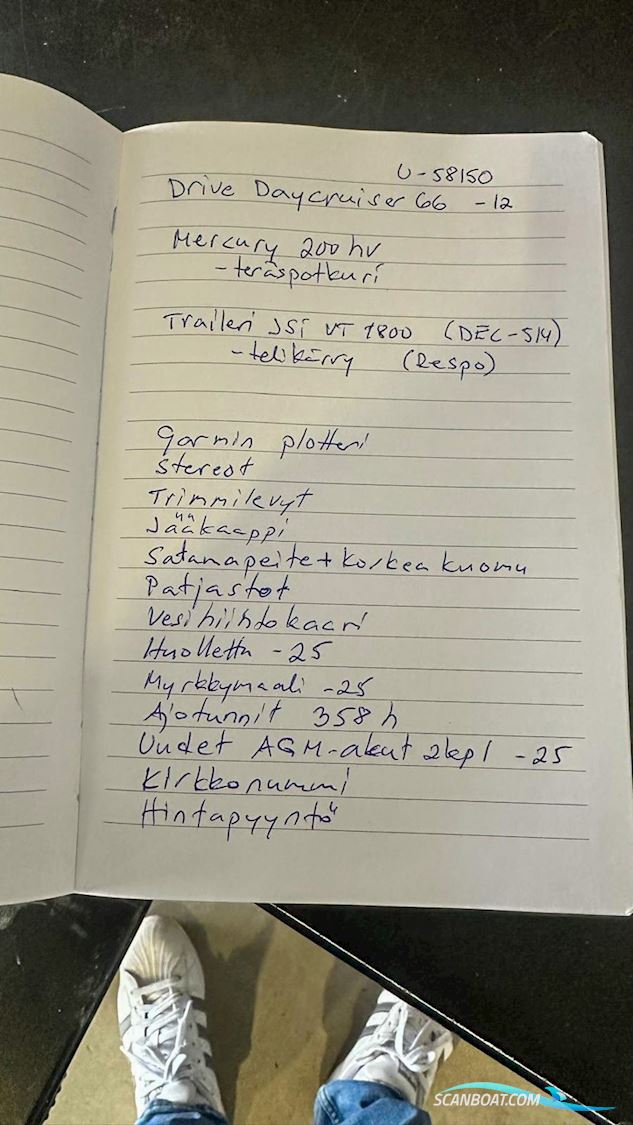 U-58150
Drive Daycruiser 66 -12
Mercury 200 hv
-teräspotkuri
Traileri JSI VT 1800 (DEC-514)
-telikärry (Respo)
Garmin plotteri
Stereot
Trimmilevyt
Jääkaappi
Satamapeite + korkea kuomu
Patjastot
Vesihiihtokaari
Huollettu -25
Myrkkymaali -25
Ajotunnit 358 h
Uudet AGM-akut 2kpl -25
Kirkkonummi
Hintapyyntö
SCANBOAT.COM